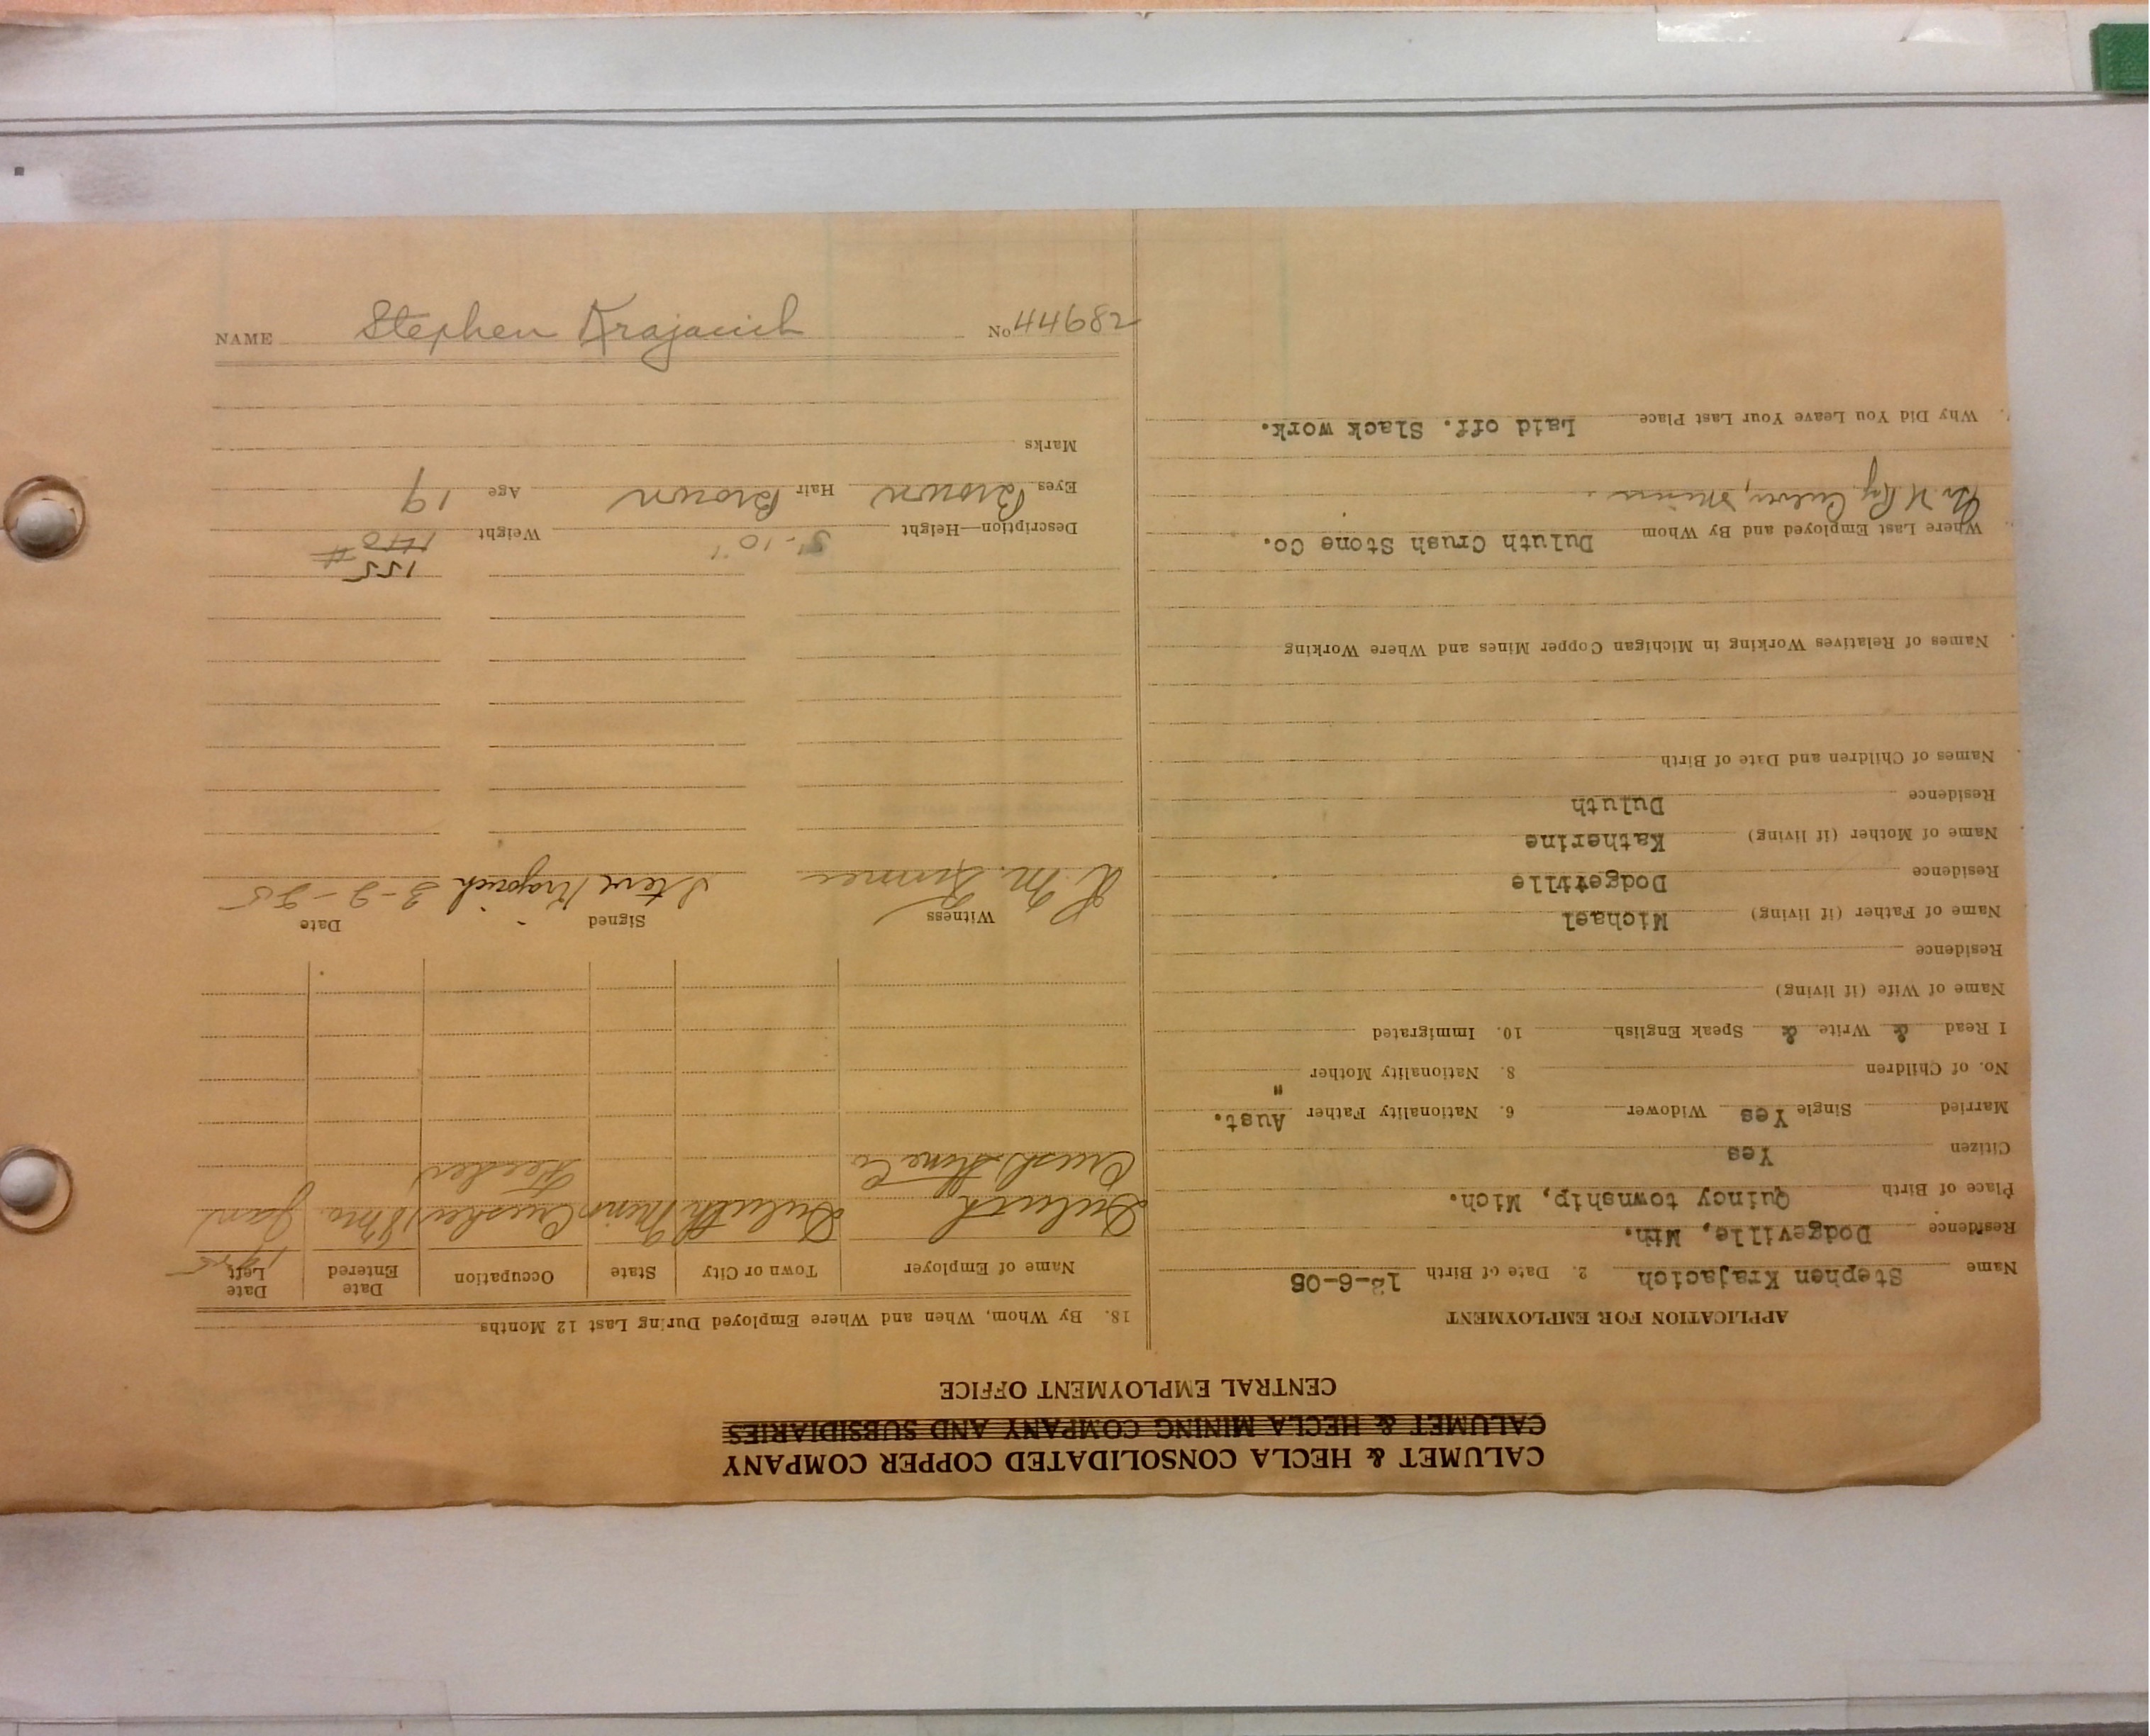 CALUMET & HECLA CONSOLIDATED COPPER COMPANY
CALUMET & HECLA MINING COMPANY AND SUBSIDIARIES
CENTRAL EMPLOYMENT OFFICE
APPLICATION FOR EMPLOYMENT
Name Stephen Krajacich 2. Date of Birth 12-6-05
Residence Dodgeville, Mth.
Place of Birth Quincy township, Mich.
Citizen Yes
Married Single Yes Widower 6. Nationality Father Aust.
No. of Children 8. Nationality Mother "
I Read & Write & Speak English 10. Immigrated
Name of Wife (if living)
Residence
Name of Father (if living) Michael
Residence Dodgeville
Name of Mother (if living) Katherine
Residence Duluth
Names of Children and Date of Birth
Names of Relatives Working in Michigan Copper Mines and Where Working
Where Last Employed and By Whom Duluth Crush Stone Co.
Minn
Why Did You Leave Your Last Place Laid off. Slack work.
18. By Whom, When and Where Employed During Last 12 Months
Name of Employer Town or City State Occupation Date Entered Date Left
1925
Duluth Duluth Minn Crusher 8 mo. Jan
Crush Stone Co Feeder
Witness Signed Date
M. Steve Krajacich 3-2-25
155
Description—Height 5'-10" Weight 140 #
Eyes Brown Hair Brown Age 19
Marks
NAME Stephen Krajacich No 44682